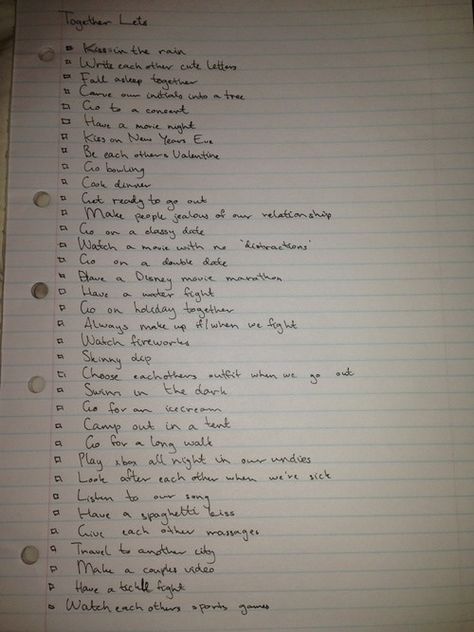 Together Lets
Kiss in the rain
Write each other cute letters
Fall asleep together
Carve our initials into a tree
Go to a concert
Have a movie night
Kiss on New Years Eve
Be each others Valentine
Go bowling
Cook dinner
Get ready to go out
Make people jealous of our relationship
Go on a classy date
Watch a movie with no 'distractions'
Go on a double date
Have a Disney movie marathon
Have a water fight
Go on holiday together
Always make up if/when we fight
Watch fireworks
Skinny dip
Choose eachothers outfit when we go out
Swim in the dark
Go for an icecream
Camp out in a tent
Go for a long walk
Play xbox all night in our undies
Look after each other when we're sick
Listen to our song
Have a spaghetti kiss
Give each other massages
Travel to another city
Make a couples video
Have a tickle fight
Watch each others sports games